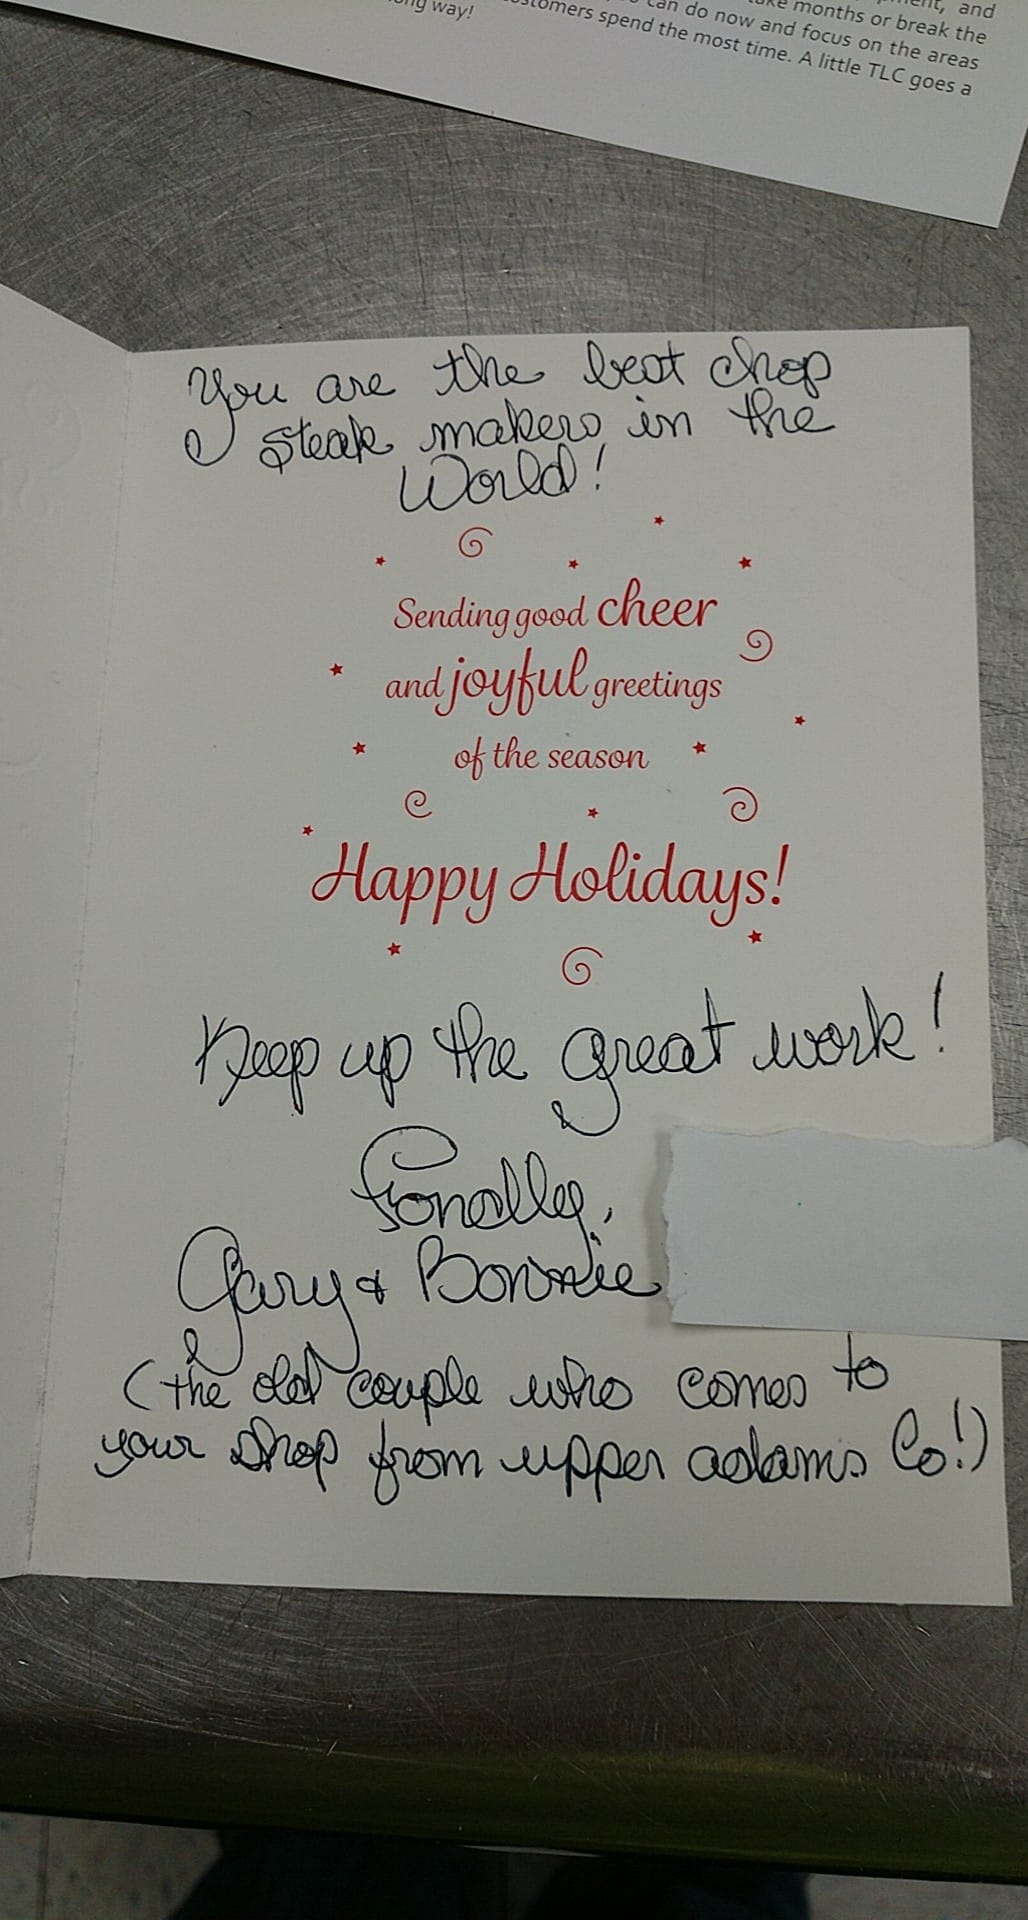 ment, and
take months or break the
can do now and focus on the areas
customers spend the most time. A little TLC goes a
long way!
You are the best chop
steak makers in the
World!
Sending good cheer
and joyful greetings
of the season
Happy Holidays!
Keep up the great work!
Fondlly,
Gary & Bonnie
(the old couple who comes to
your shop from upper adams Co!)